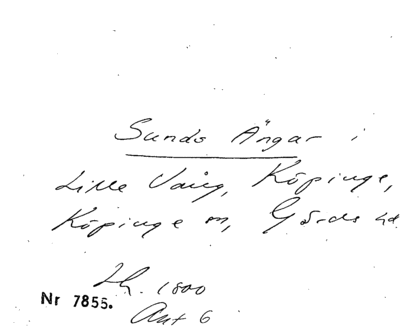 Sunds Ängar i
Lille Vång, Köpinge,
Köpinge sn, Gärds hd
Lh. 1800
Nr 7855.
Ant 6